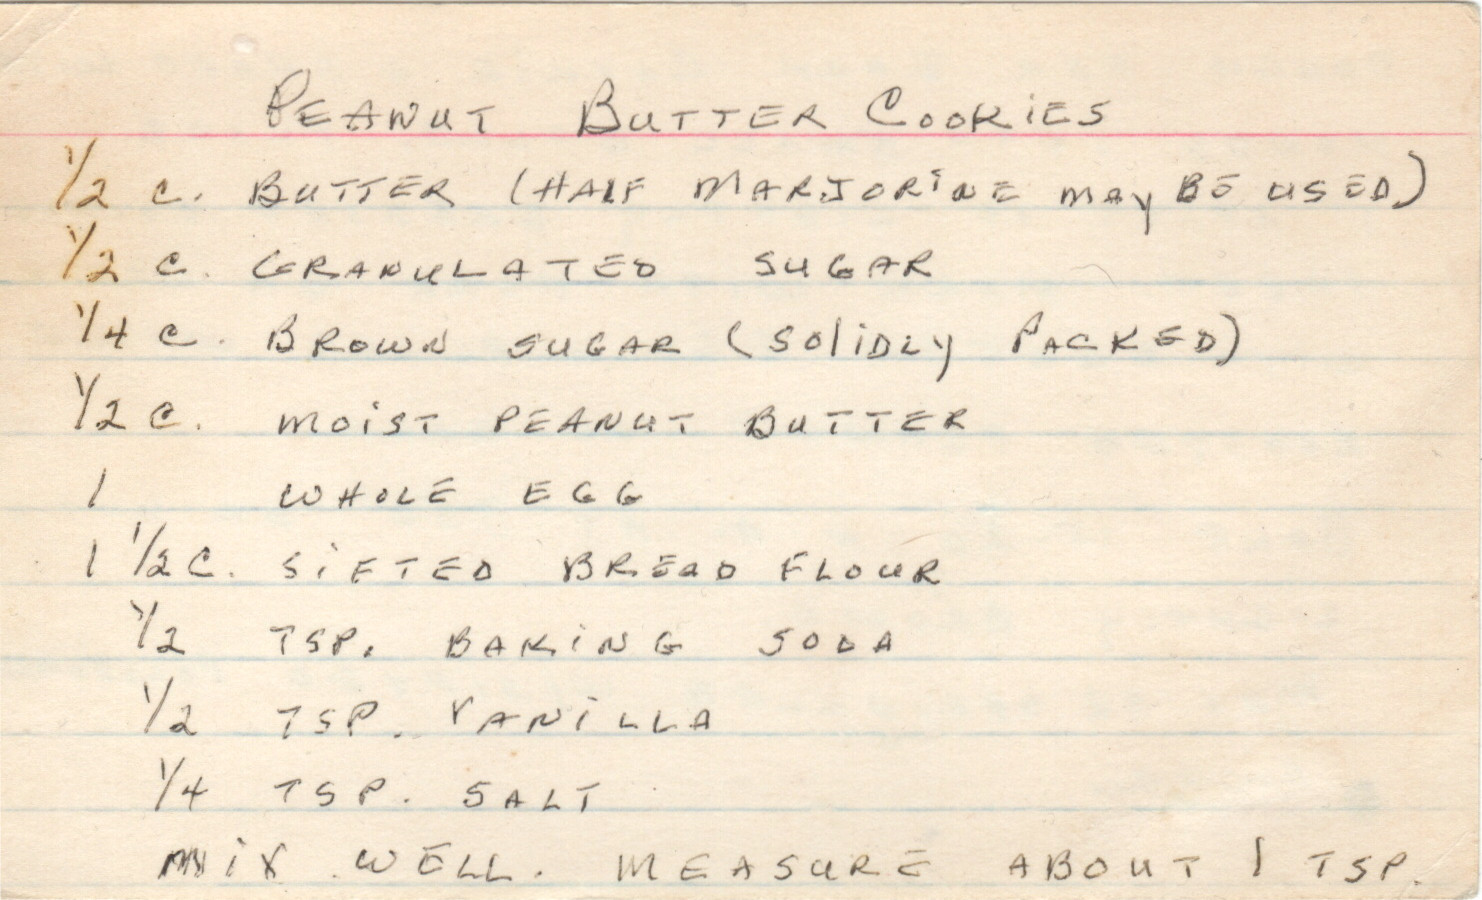 PEANUT BUTTER COOKIES
1/2 C. BUTTER (HALF MARJORINE MAY BE USED)
1/2 C. GRANULATED SUGAR
1/4 C. BROWN SUGAR (SOLIDLY PACKED)
1/2 C. MOIST PEANUT BUTTER
1 WHOLE EGG
1 1/2 C. SIFTED BREAD FLOUR
1/2 TSP. BAKING SODA
1/2 TSP. VANILLA
1/4 TSP. SALT
MIX WELL. MEASURE ABOUT 1 TSP.